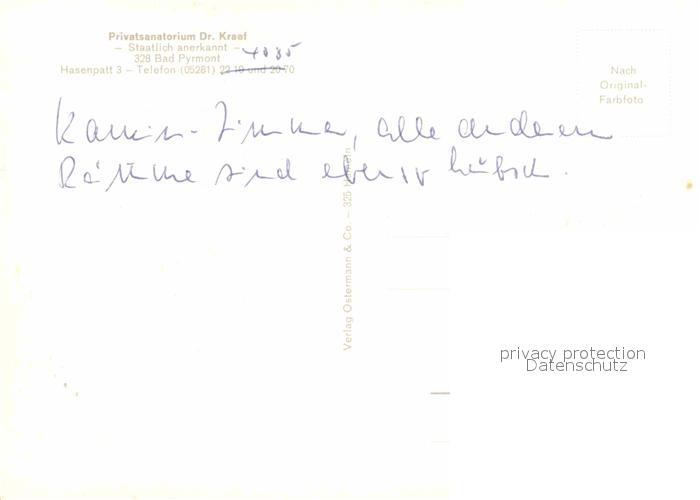 Privatsanatorium Dr. Kraef
– Staatlich anerkannt –
4035
328 Bad Pyrmont
Hasenpatt 3 – Telefon (05281) 22 19 und 20 70
Nach
Original-
Farbfoto
Kamin-Zimmer, alle anderen
Räume sind ebenso hübsch.
Verlag Ostermann & Co. – 325 Hameln
privacy protection
Datenschutz